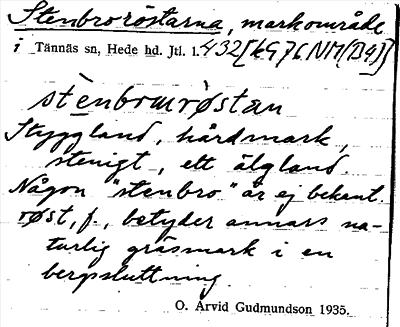 Stenbroröstarna, markområde
i Tännäs sn, Hede hd. Jtl. 1.432 [kG76NM(B4)]
stènbrωrøstan
Styggland, hårdmark,
stenigt, ett älgland.
Någon "stenbro" är ej bekant.
røst, f., betyder annars na-
turlig gräsmark i en
bergssluttning.
O. Arvid Gudmundson 1935.